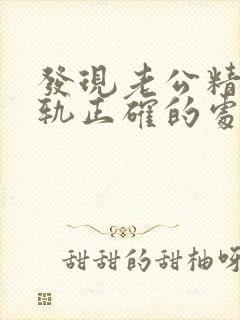 發現老公精
軌正確的處
甜甜的甜柚呀